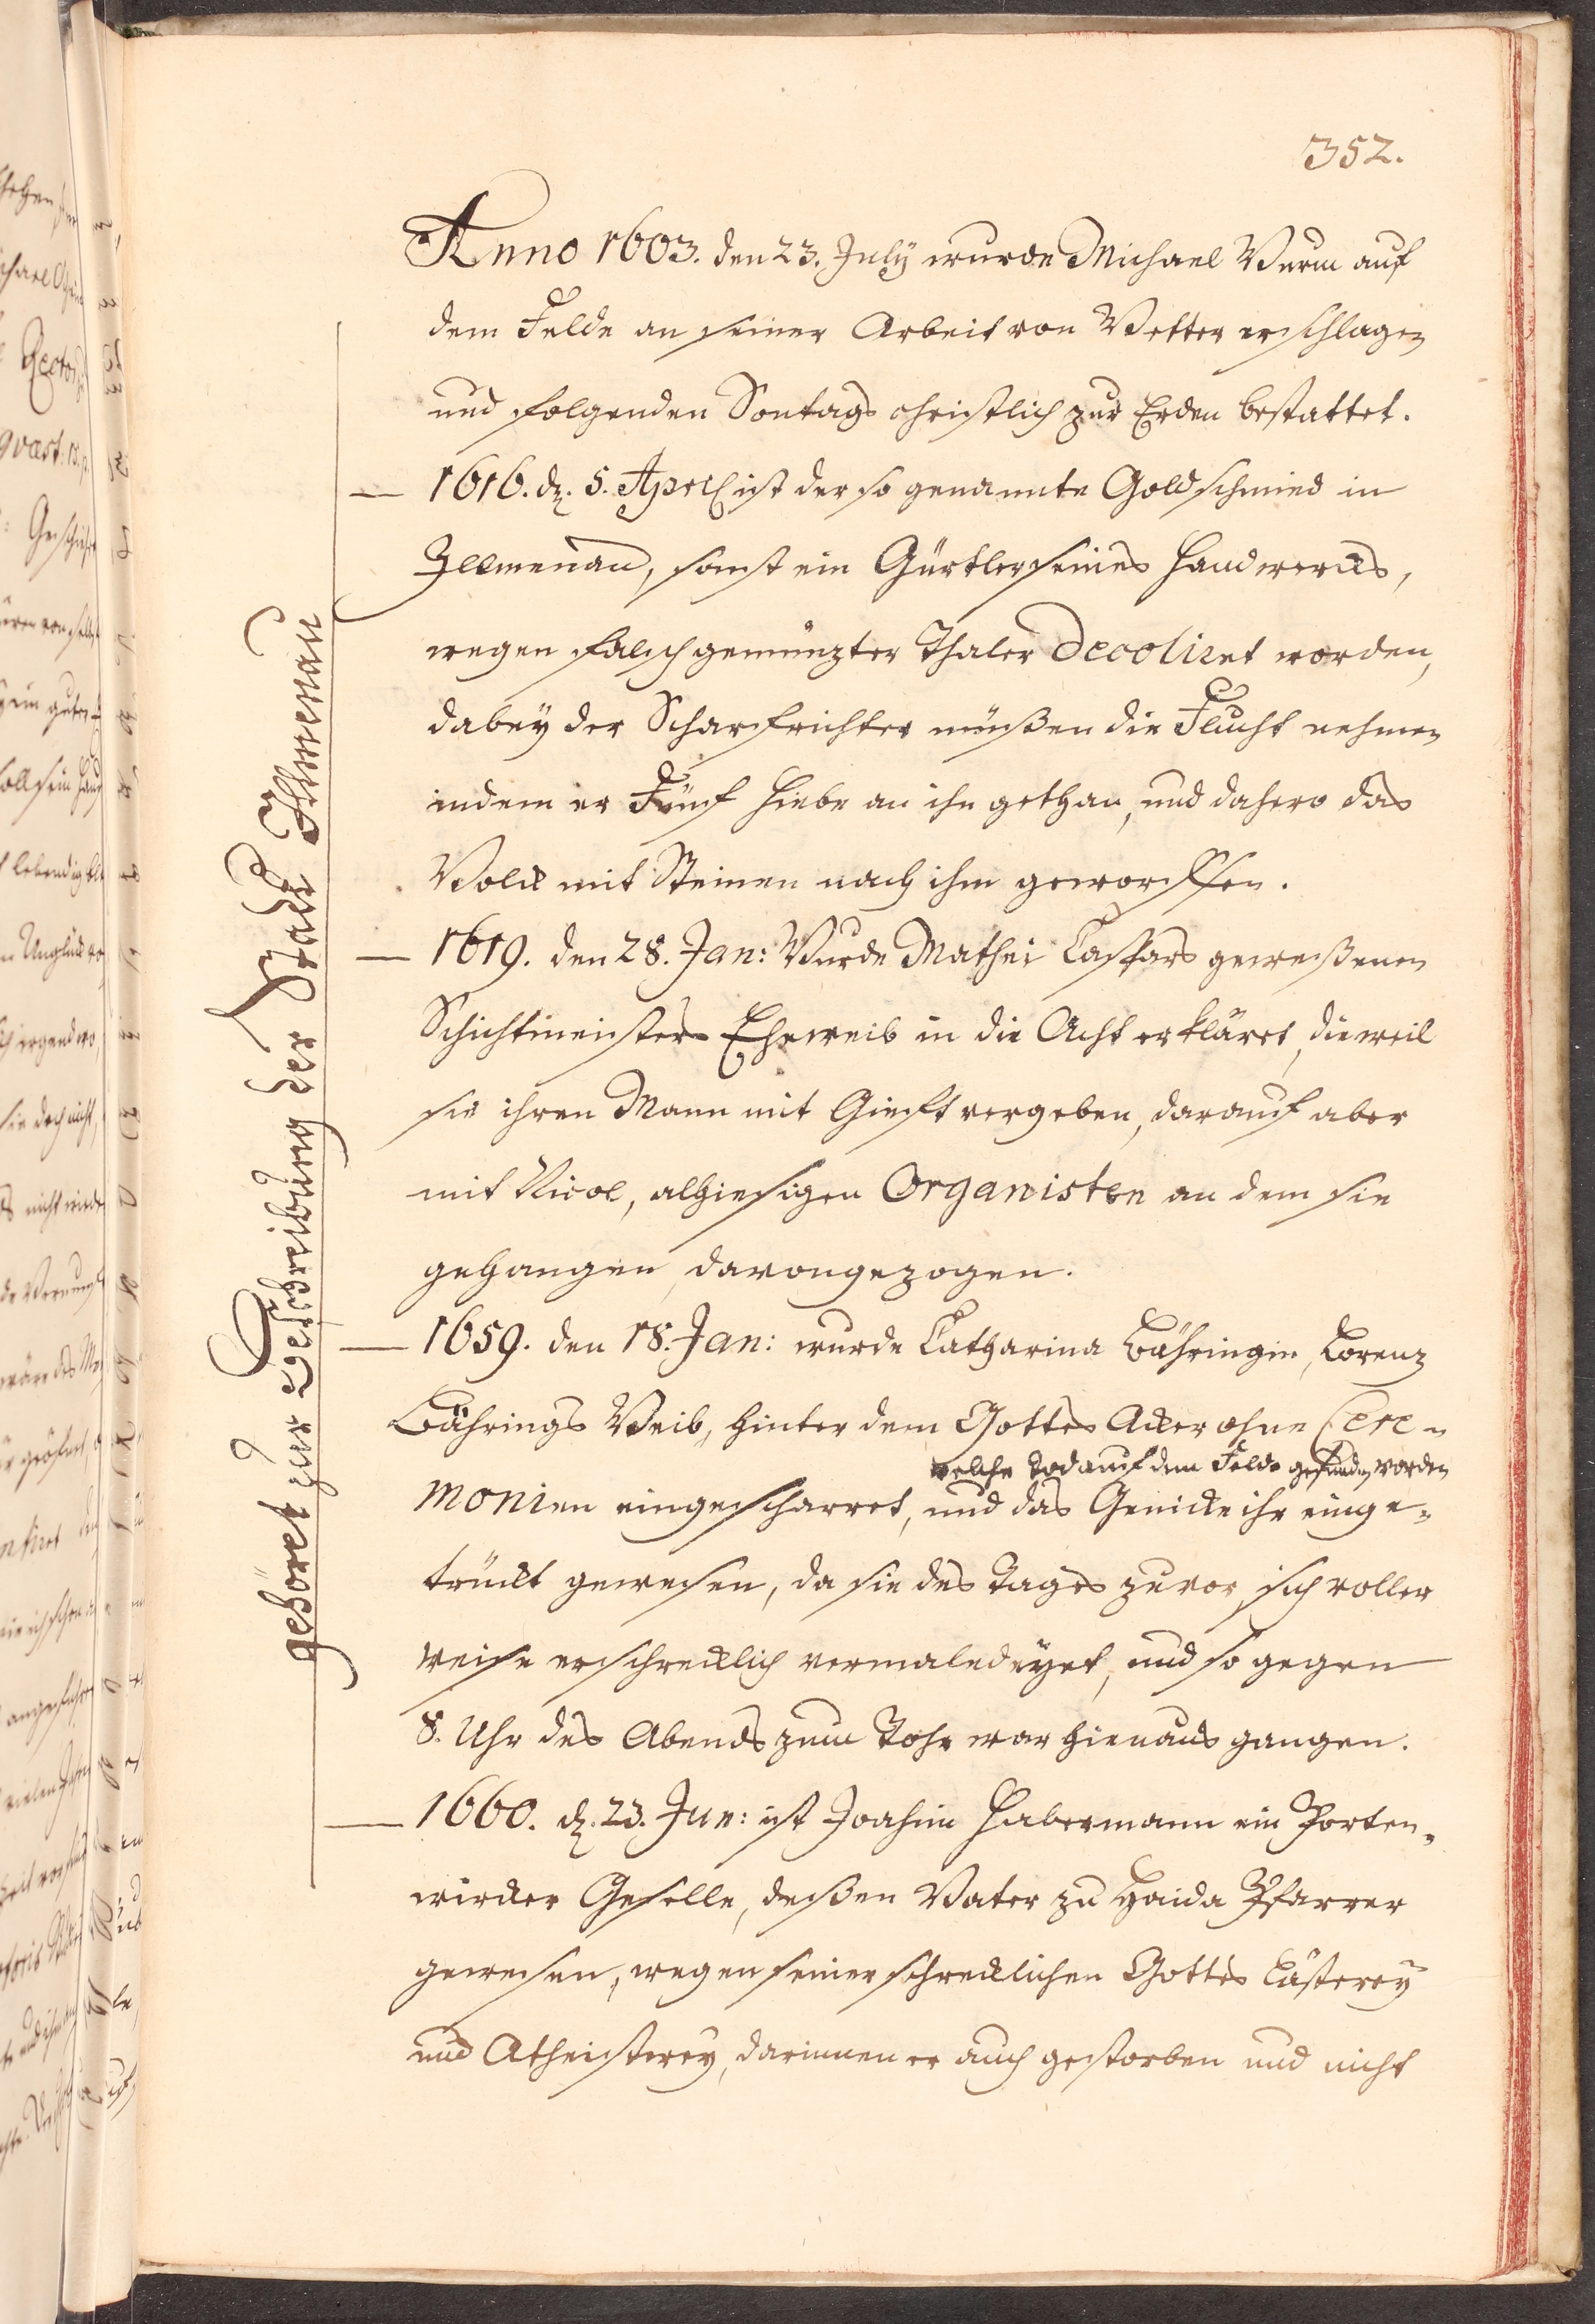 352.
Anno 1603. den 23. July wurde Michael Wurm auf
dem Felde an seiner Arbeit von Wetter erschlagen
und folgenden Sontags christlich zur Erden bestattet.
— 1616. dn. 5. April ist der so genannte Goldschmied in
Illmenau, sonst ein Gürtler seines Handwercks,
wegen falsch gemüntzter Thaler decoliret worden,
dabey der Scharfrichter müßen die Flucht nehmen
indem er Fünf Hiebe an ihn gethan, und dahero das
Volck mit Steinen nach ihm geworffen.
— 1619. den 28. Jan: Wurde Mathei Caspars geweßenen
Schichtmeisters Eheweib in die Acht erkläret, dieweil
sie ihren Mann mit Gieft vergeben, darauf aber
mit Nicol, alhiesigen Organisten an dem sie
gehangen, davongezogen.
— 1659. den 18. Jan: wurde Catharina Bähringin, Lorenz
Bährings Weib, hinter dem Gottes Acker ohne Cere-
welche Tod auf dem Felde gefunden worden
monien eingescharret, und das Genicke ihr einge-
trückt gewesen, da sie des Tages zuvor sich voller
weise erschrecklich vermaledeyet, und so gegen
8. Uhr des Abends zum Tohr war hienaus gangen.
— 1660. dn. 23. Jun: ist Joachim Habermann ein Porten-
wircker Geselle, deßen Vater zu Haida Pfarrer
gewesen, wegen seiner schrecklichen Gottes Lästerey
und Atheisterey, darinnen er auch gestorben und nicht
gehöret zur Beschreibung der Stadt Ilmenau